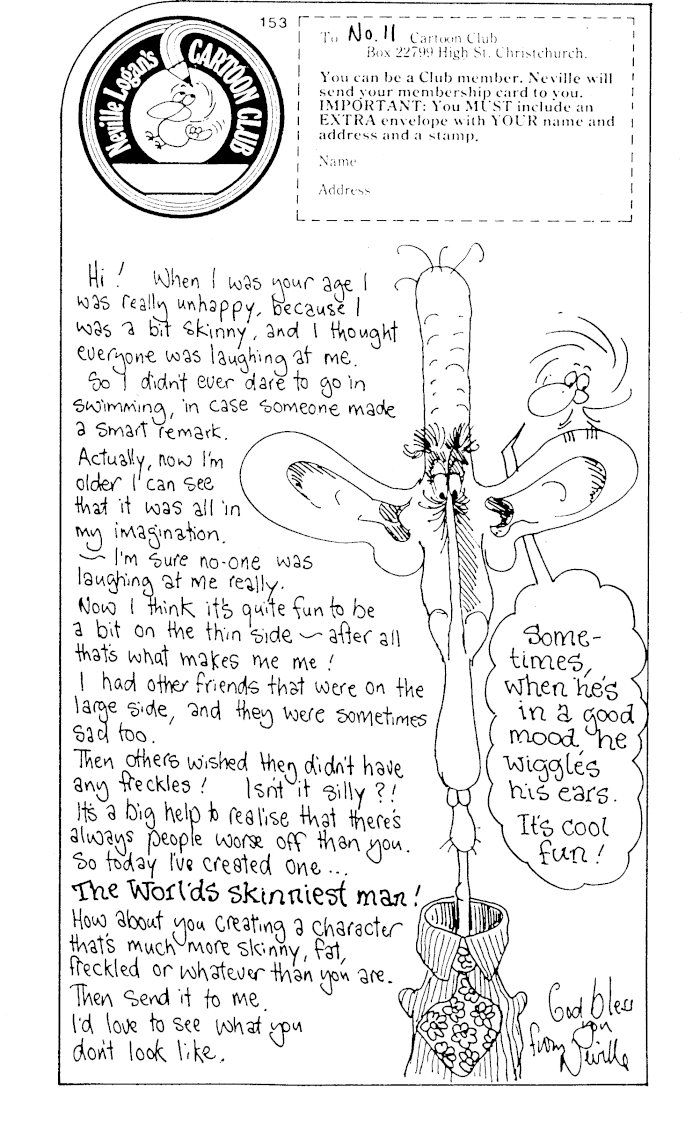 Neville Logan's
CARTOON CLUB
153
To No. 11 Cartoon Club
Box 22799 High St. Christchurch.
You can be a Club member. Neville will
send your membership card to you.
IMPORTANT: You MUST include an
EXTRA envelope with YOUR name and
address and a stamp.
Name
Address
Hi! When I was your age I
was really unhappy, because I
was a bit skinny, and I thought
everyone was laughing at me.
So I didn't ever dare to go in
swimming, in case someone made
a smart remark.
Actually, now I'm
older I can see
that it was all in
my imagination.
– I'm sure no-one was
laughing at me really.
Now I think it's quite fun to be
a bit on the thin side – after all
that's what makes me me!
I had other friends that were on the
large side, and they were sometimes
sad too.
Then others wished they didn't have
any freckles! Isn't it silly?!
It's a big help to realise that there's
always people worse off than you.
So today I've created one ...
The World's skinniest man!
How about you creating a character
that's much more skinny, fat,
freckled or whatever than you are.
Then send it to me.
I'd love to see what you
don't look like.
Some-
times,
when he's
in a good
mood, he
wiggles
his ears.
It's cool
fun!
God bless
you
from Neville